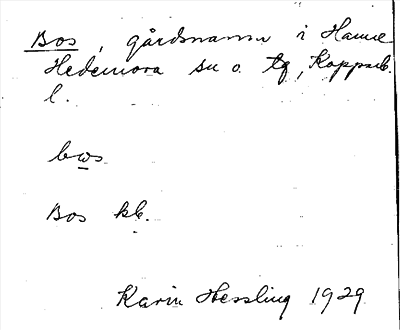 Bos, gårdsnamn i Hamre
Hedemora sn o. tg, Kopparb.
l.
bws
Bos kb.
Karin Hessling 1929